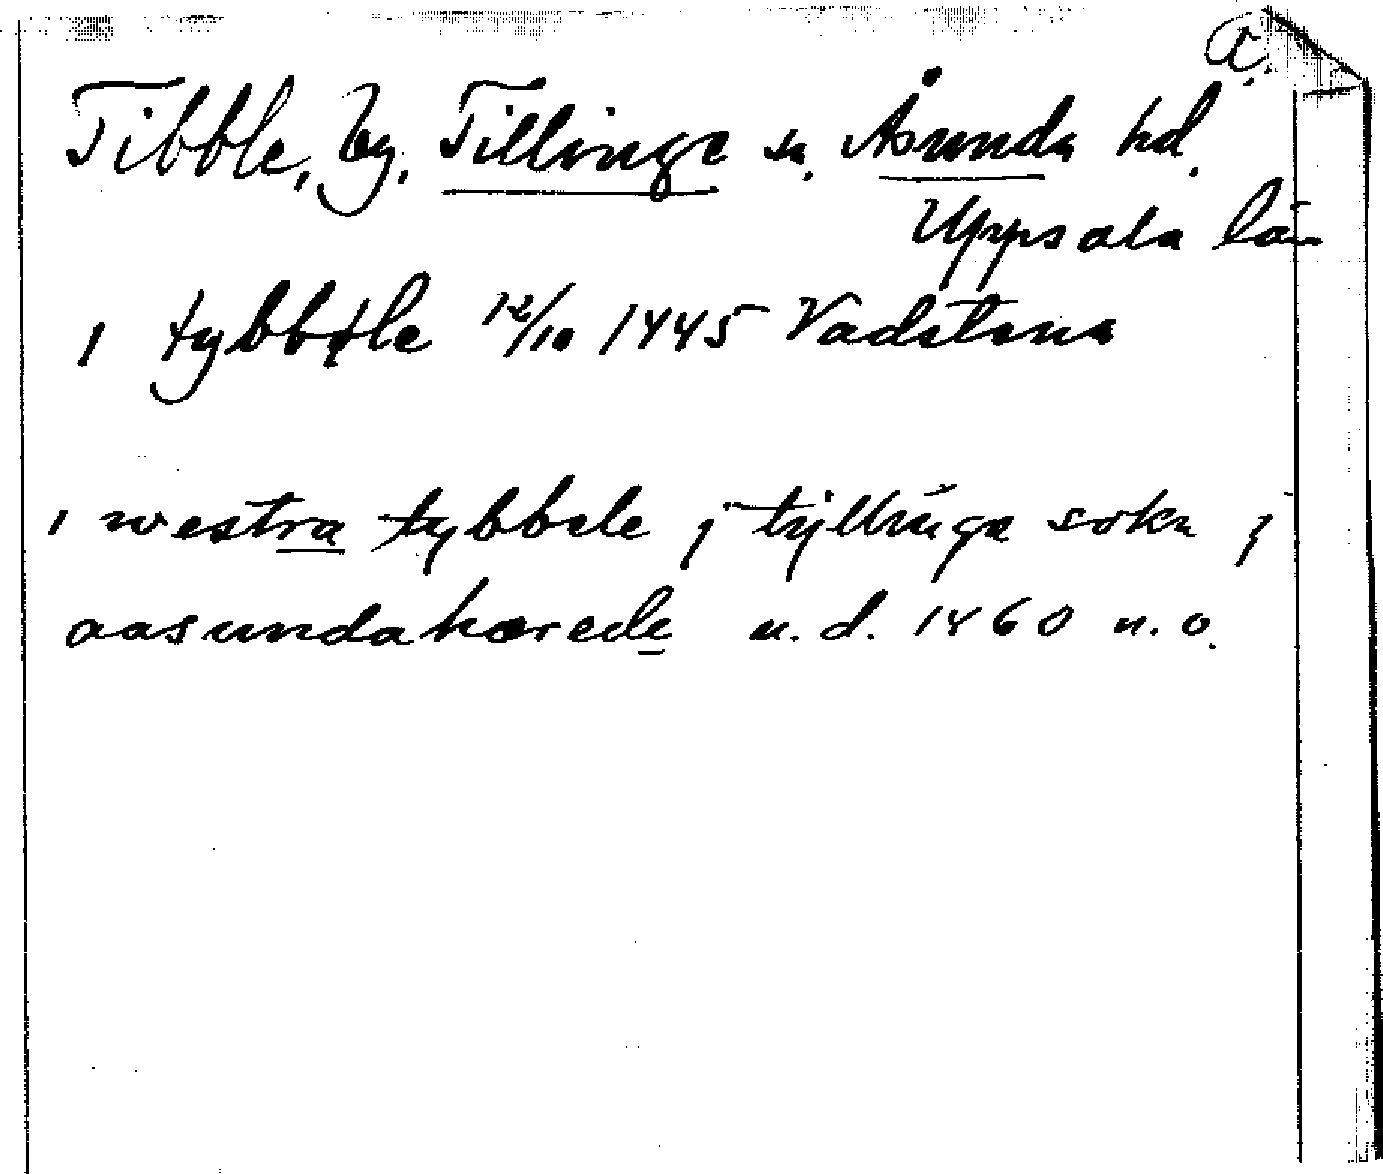 a.
Tibble, by, Tillinge sn. Åsunda hd.
Uppsala län
i tybbøle 12/10 1445 Vadstena
i westra tybbele j tyllinga sokn j
aasundahærede u.d. 1460 u.o.